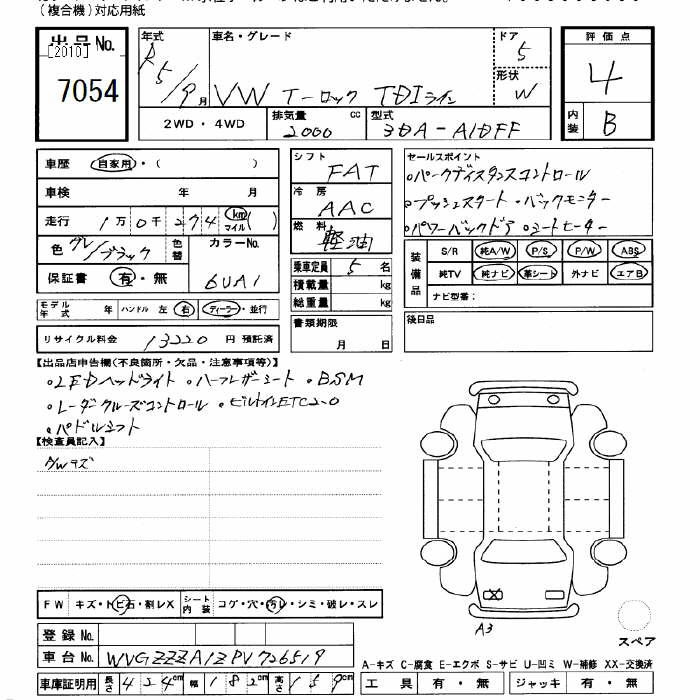 (複合機)対応用紙
出品No.
[2010]
7054
年式
R5/9月
車名・グレード
VW T-ロック TDIライン
ドア
5
形状
W
2WD・4WD
排気量 cc
2000
型式
3DA-A1DFF
評価点
4
内装
B
車歴 自家用・( )
車検 年 月
走行 1万0千274 km マイル ( )
色 グレー/ブラック 色替
カラーNo.
6UA1
保証書 有・無
モデル年式 年 ハンドル 左 右 ディーラー・並行
リサイクル料金 13220円 預託済
シフト
FAT
冷房
AAC
燃料
軽油
乗車定員 5名
積載量 kg
総重量 kg
書類期限
月 日
セールスポイント
・パークディスタンスコントロール
・プッシュスタート ・バックモニター
・パワーバックドア ・シートヒーター
装備品
S/R 純A/W P/S P/W ABS
純TV 純ナビ 革シート 外ナビ エアB
ナビ型番:
後日品
【出品店申告欄(不良箇所・欠品・注意事項等)】
・LEDヘッドライト ・ハーフレザーシート ・BSM
・レーダークルーズコントロール ・ビルトインETC2.0
・パドルシフト
【検査員記入】
A/Wキズ
FW キズ・トビ石・割レX シート内装 コゲ・穴・汚レ・シミ・破レ・スレ
登録No.
車台No. WVGZZZA1ZPV726519
車庫証明用 長さ 424cm 幅 182cm 高さ 159cm
X
A3
スペア
A-キズ C-腐食 E-エクボ S-サビ U-凹ミ W-補修 XX-交換済
工具 有・無 ジャッキ 有・無